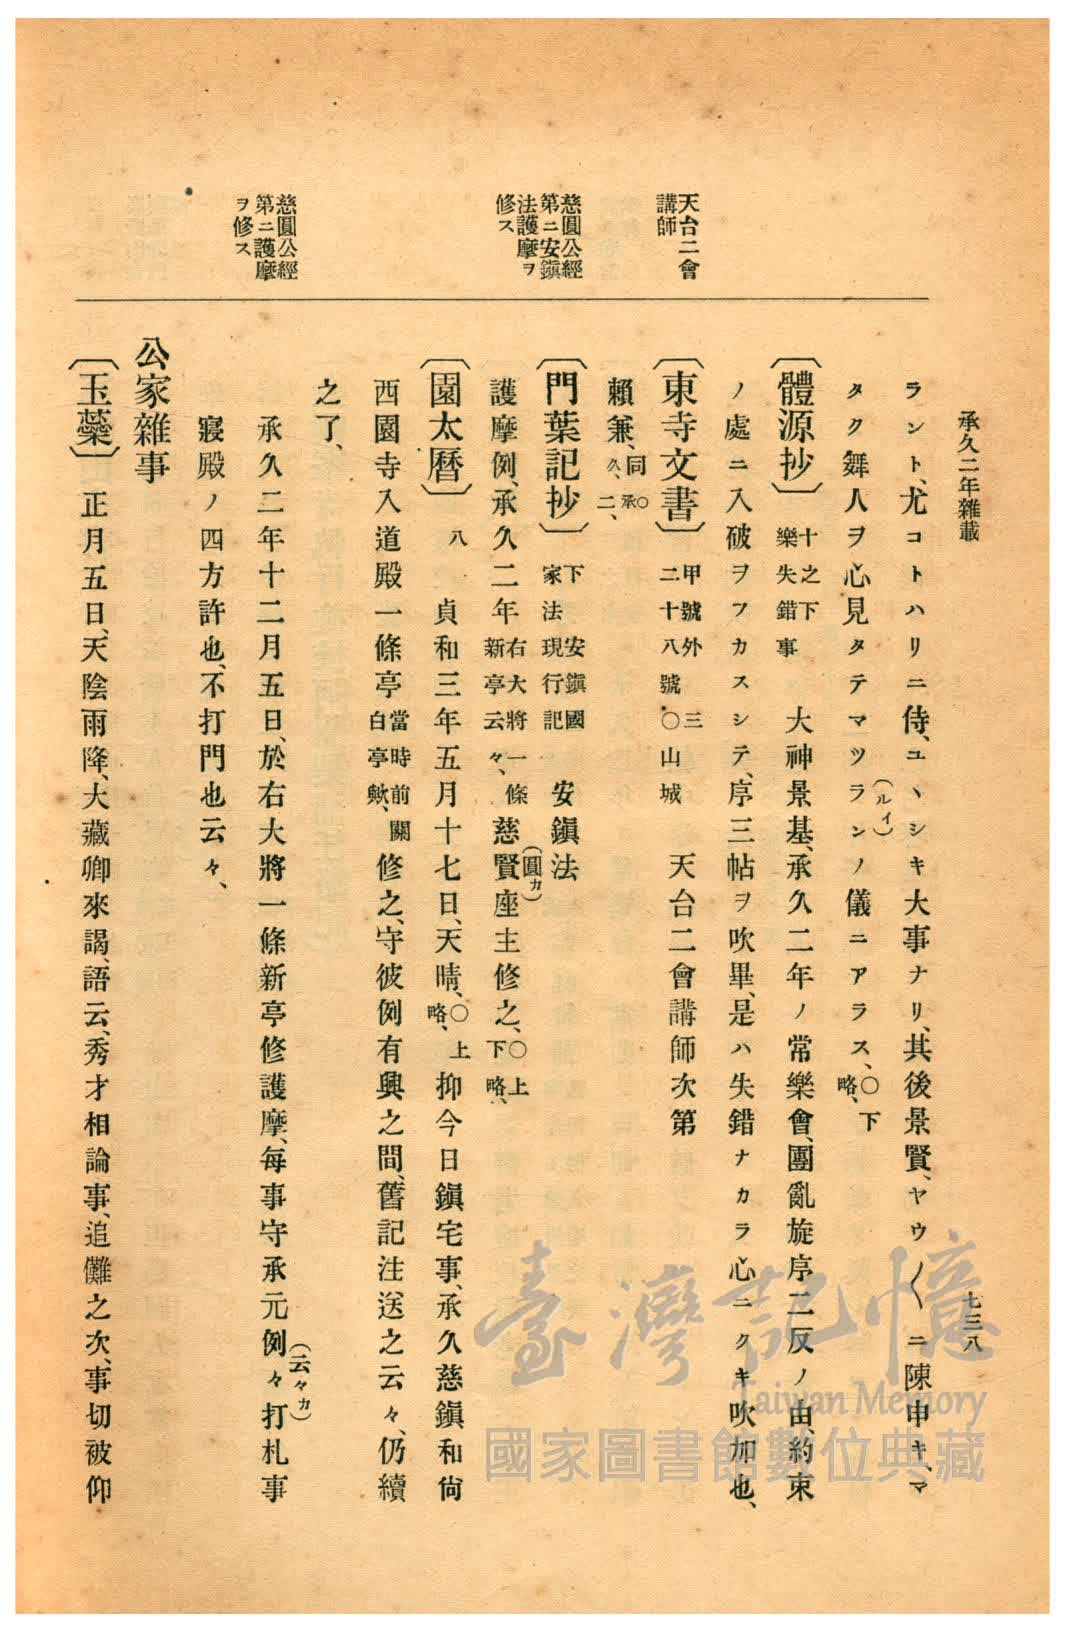 承久二年雜載
七三八
天台二會
講師
慈圓公經
第ニ安鎭
法護摩ヲ
修ス
慈圓公經
第ニ護摩
ヲ修ス
ラント、尤コトハリニ侍、ユヽシキ大事ナリ、其後景賢、ヤウ〱ニ陳申キ、マ
タク舞人ヲ心見タテマツラン(ルイ)ノ儀ニアラス、〇下略、
〔體源抄〕十之下 樂失錯事 大神景基、承久二年ノ常樂會、團亂旋序二反ノ由、約束
ノ處ニ入破ヲフカスシテ、序三帖ヲ吹畢、是ハ失錯ナカラ心ニクキ吹加也、
〔東寺文書〕甲號外三 二十八號〇山城 天台二會講師次第
賴兼、同〇承久、二、
〔門葉記抄〕下 安鎭國家法現行記 安鎭法
護摩例、承久二年右大將一條新亭云々、慈賢(圓カ)座主修之、〇上下略、
〔園太曆〕八 貞和三年五月十七日、天晴、〇上略、抑今日鎭宅事、承久慈鎭和尙
西園寺入道殿一條亭當時前關白亭歟、修之、守彼例有興之間、舊記注送之云々、仍續
之了、
承久二年十二月五日、於右大將一條新亭修護摩、每事守承元例々(云々カ)打札事
寢殿ノ四方許也、不打門也云々、
公家雜事
〔玉蘂〕正月五日、天陰雨降、大藏卿來謁、語云、秀才相論事、追儺之次、事切被仰
臺灣記憶
Taiwan Memory
國家圖書館數位典藏